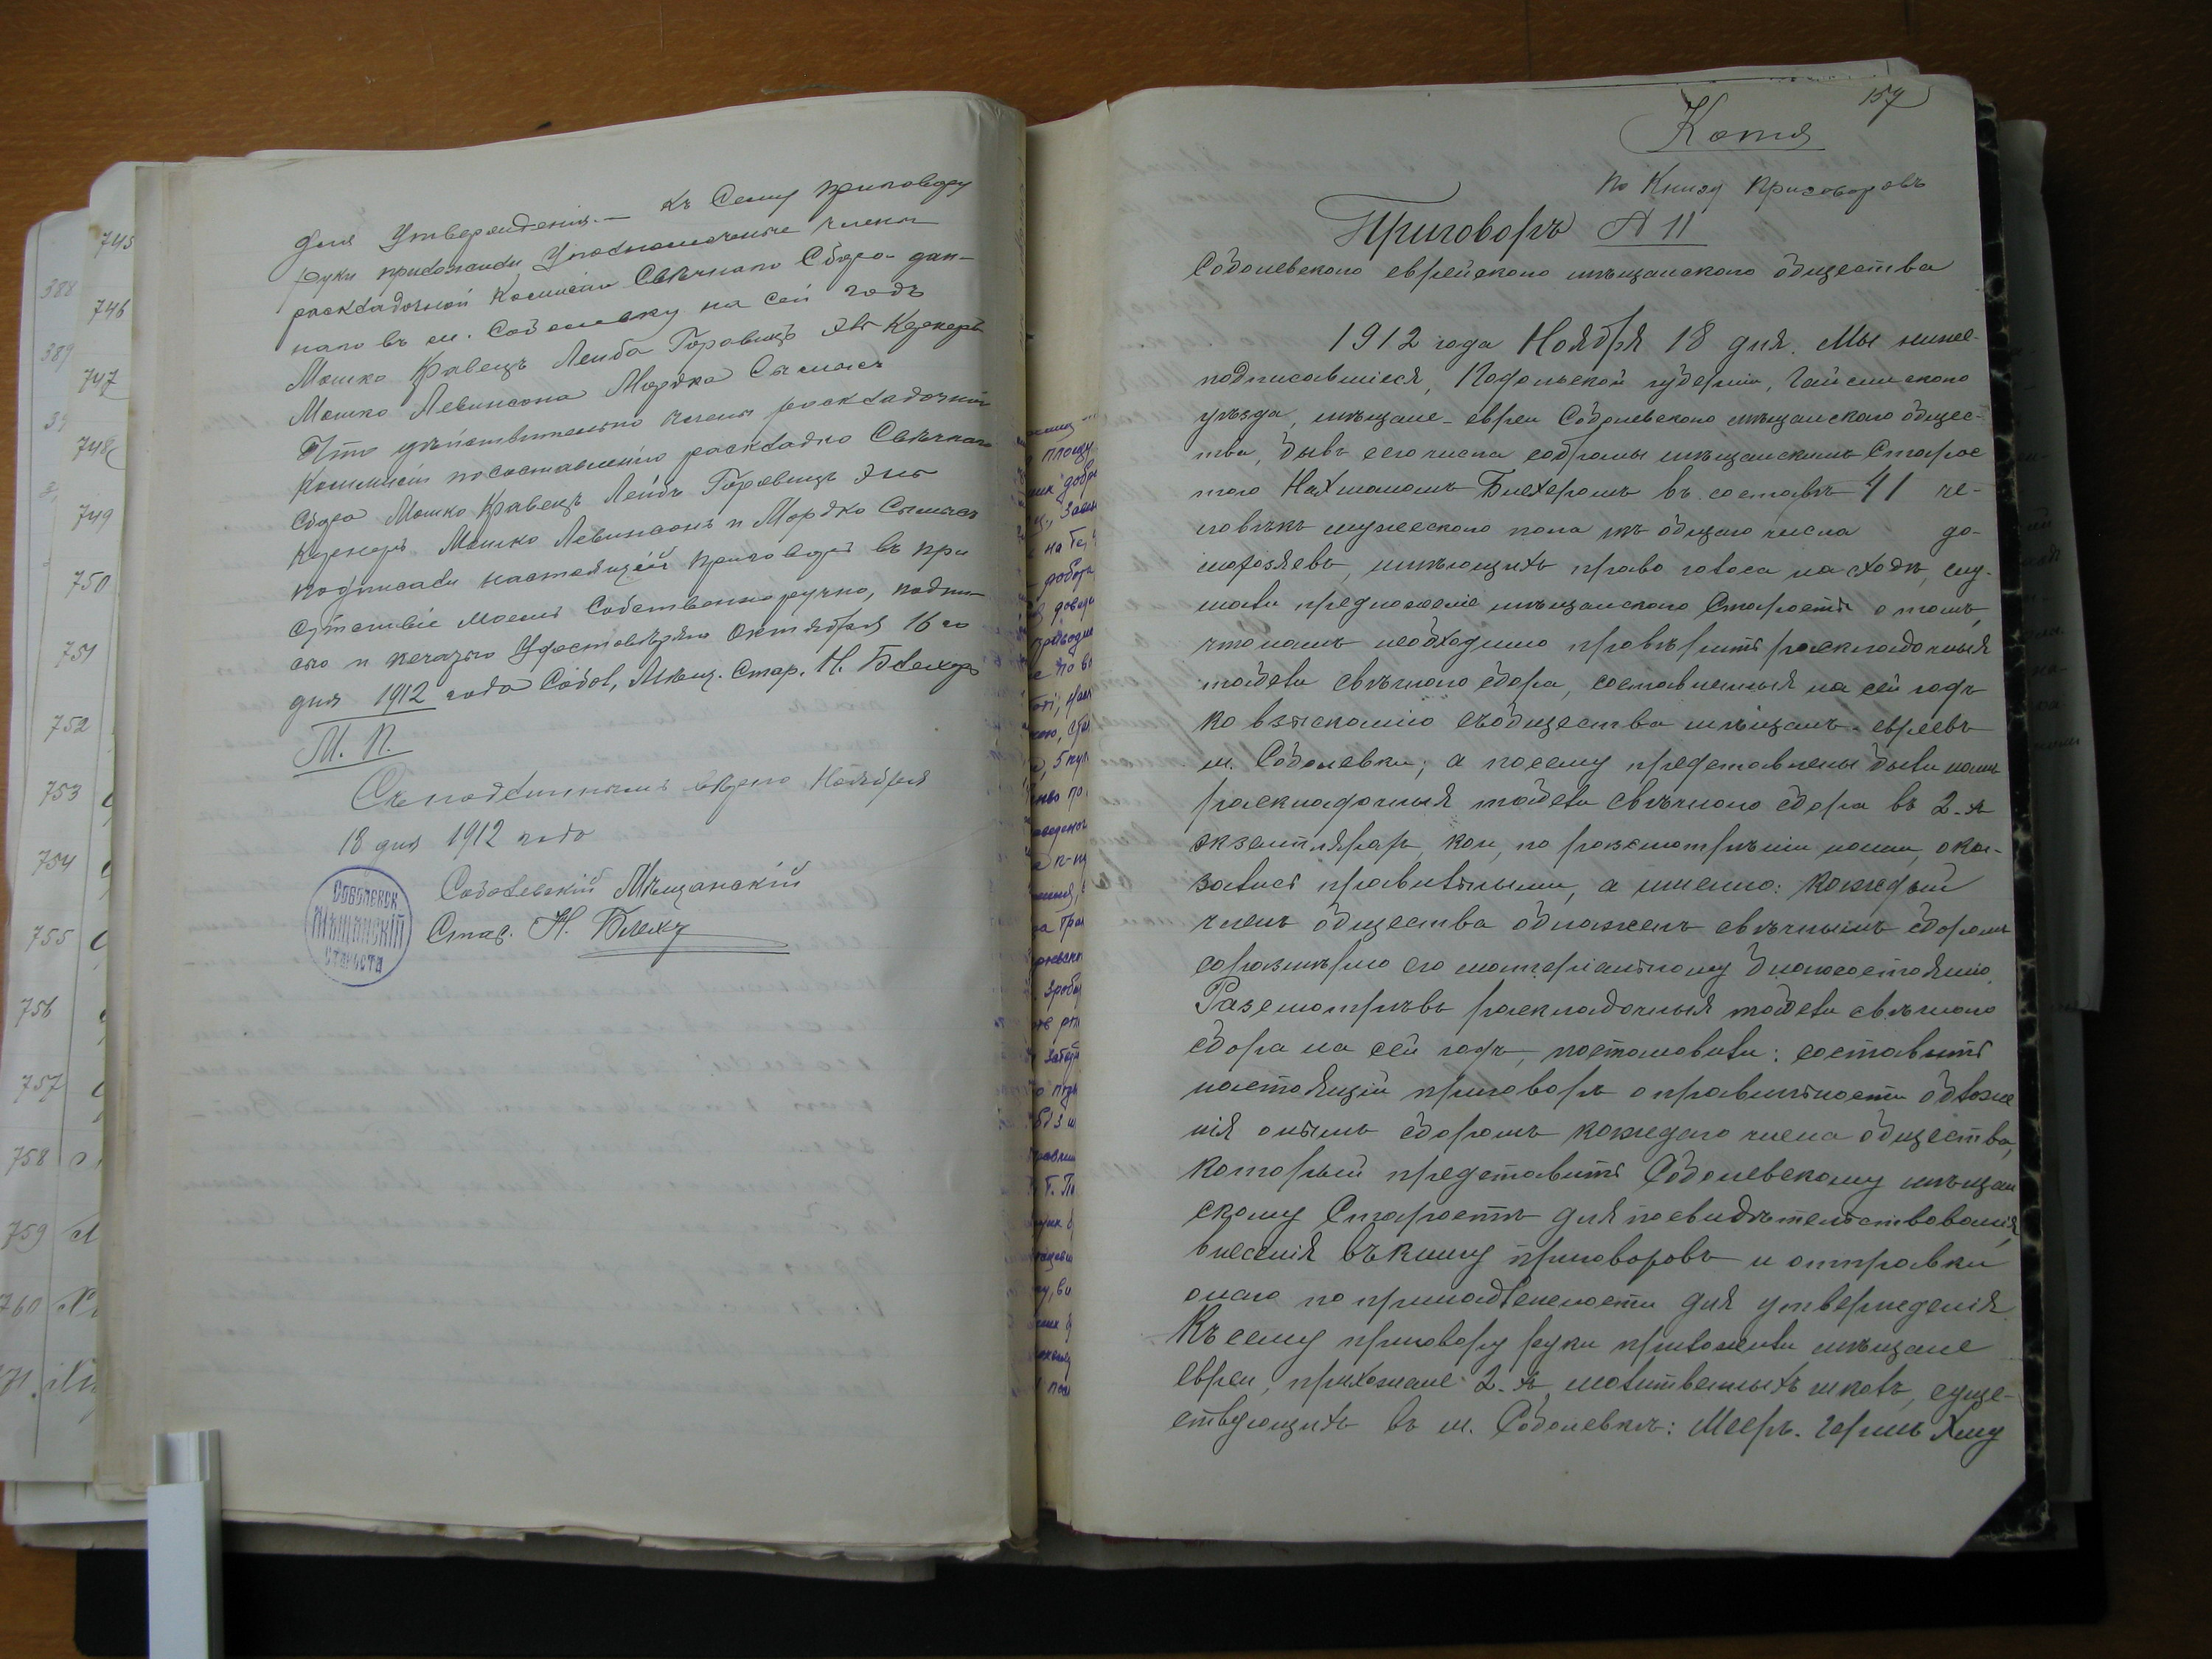 для Утвержденія.— Къ Сему приговору
руки приложили Уполномоченные члены
раскладочной Комиссіи Свѣчнаго Сбора дан-
наго въ м. Соболевку на сей годъ
Мошко Кравецъ Лейба Горовицъ
Мошко Левинсонъ Мордко
Что дѣйствительно члены раскладочной
Коммисіи по составленію раскладки Свѣчнаго
Сбора Мошко Кравецъ Лейбъ Горовицъ
Мошко Левинсонъ и Мордко
подписали настоящій приговоръ въ при
сутствіе моемъ Собственноручно, подпи-
сью и печатью Удостовѣряю Октября 16го
дня 1912 года Собол, Мѣщ. Стар. Н. Блехеръ
М. П.
Съ подлиннымъ вѣрно Ноября
18 дня 1912 года
Соболевскій Мѣщанскій
Стар. Н. Блехер
СОБОЛЕВСК
МѢЩАНСКІЙ
СТАРОСТА
745
388
746
389
747
748
749
750
751
752
753
754
755
756
757
758
759
760
157
Копія
по Книгѣ Приговоровъ
Приговоръ № 11
Соболевскаго еврейскаго мѣщанскаго общества
1912 года Ноября 18 дня. Мы ниже-
подписавшіеся, Подольской губерніи, Гайсинскаго
уѣзда, мѣщане-евреи Соболевскаго мѣщанскаго общес-
тва, бывъ сего числа собраны мѣщанскимъ Старос
тою Нахманомъ Блехеромъ въ составѣ 41 че-
ловѣкъ мужескаго пола изъ общаго числа до-
мохозяевъ, имѣющихъ право голоса на сходѣ, слу-
шали предложеніе мѣщанскаго Старосты о томъ,
что намъ необходимо провѣрить раскладочныя
табели свѣчнаго сбора, составленныя на сей годъ
ко взысканію съ общества мѣщанъ-евреевъ
м. Соболевки; а посему представлены были намъ
раскладочныя табели свѣчнаго сбора въ 2-хъ
экземплярахъ, кои, по разсмотрѣніи нами, ока-
зались правильными, а именно: каждый
членъ общества обложенъ свѣчнымъ сборомъ
соразмѣрно его матеріальному благосостоянію.
Разсмотрѣвъ раскладочныя табели свѣчнаго
сбора на сей годъ, постановили: составить
настоящій приговоръ о правильности обложе
нія онымъ сборомъ каждаго члена общества,
который представить Соболевскому мѣщан
скому Старостѣ для засвидѣтельствованія,
внесенія въ книгу приговоровъ и отправки
онаго по принадлежности для утвержденія.
Къ сему приговору руки приложили мѣщане
евреи, прихожане 2-хъ молитвенныхъ школъ, суще-
ствующихъ въ м. Соболевкѣ: Мееръ-Гершъ